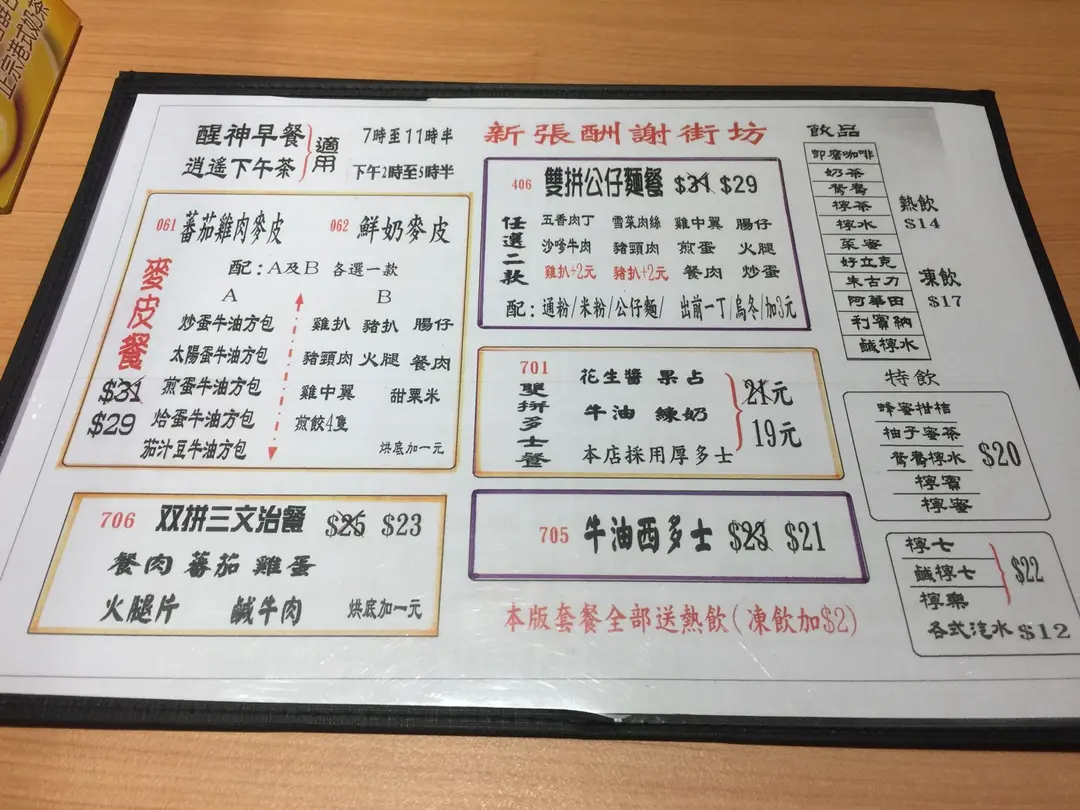 正宗港式奶茶
醒神早餐
逍遙下午茶
適用
7時至11時半
下午2時至5時半
061 蕃茄雞肉麥皮
062 鮮奶麥皮
麥皮餐
$31
$29
配:A及B 各選一款
A
炒蛋牛油方包
太陽蛋牛油方包
煎蛋牛油方包
焓蛋牛油方包
茄汁豆牛油方包
B
雞扒 豬扒 腸仔
豬頸肉 火腿 餐肉
雞中翼 甜粟米
煎餃4隻
烘底加一元
706 双拼三文治餐 $25 $23
餐肉 蕃茄 雞蛋
火腿片 鹹牛肉 烘底加一元
新張酬謝街坊
406 雙拼公仔麵餐 $31 $29
任選二款
五香肉丁 雪菜肉絲 雞中翼 腸仔
沙嗲牛肉 豬頸肉 煎蛋 火腿
雞扒+2元 豬扒+2元 餐肉 炒蛋
配:通粉/米粉/公仔麵/ 出前一丁/烏冬/加3元
701
雙拼多士餐
花生醬 果占
牛油 練奶
本店採用厚多士
21元
19元
705 牛油西多士 $23 $21
本版套餐全部送熱飲(凍飲加$2)
飲品
即磨咖啡
奶茶
鴛鴦
檸茶
檸水
菜蜜
好立克
朱古力
阿華田
利賓納
鹹檸水
熱飲
$14
凍飲
$17
特飲
蜂蜜柑桔
柚子蜜茶
鴛鴦檸水
檸賓
檸蜜
$20
檸七
鹹檸七
檸樂
$22
各式汽水 $12